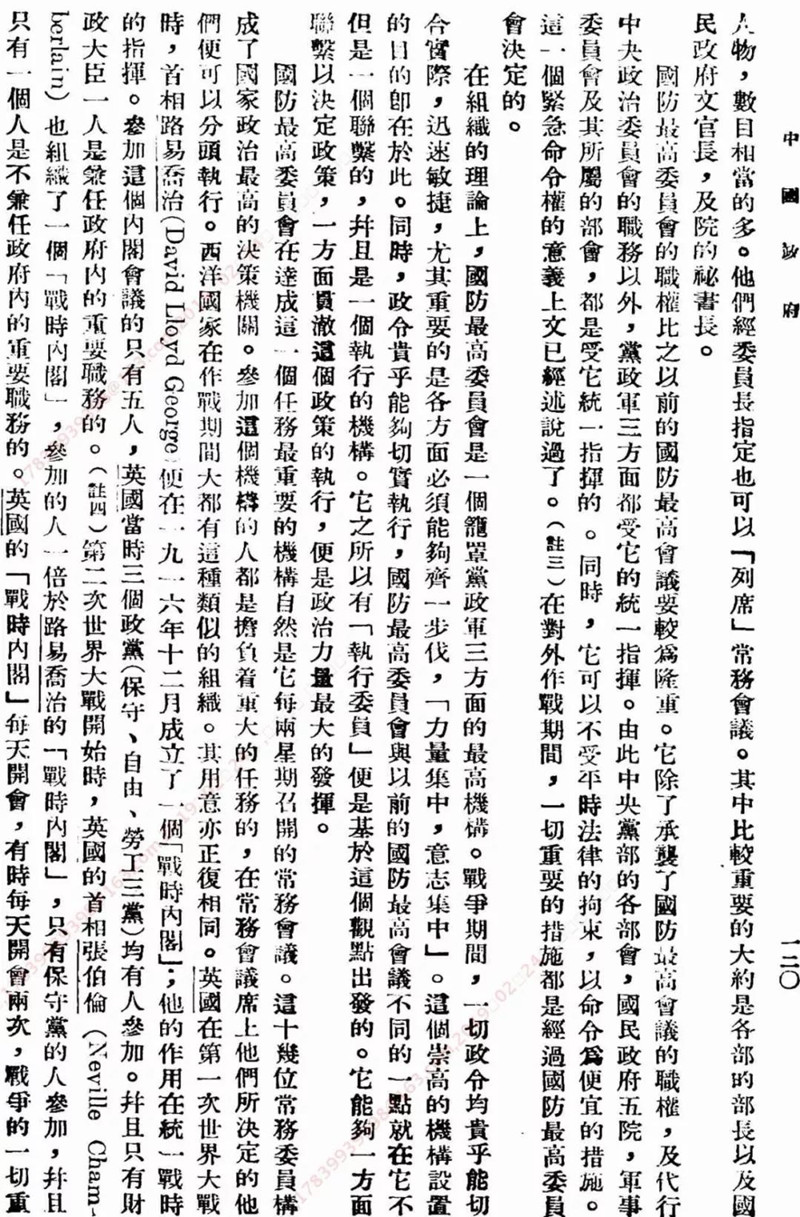 中國政府
一二〇
人物，數目相當的多。他們經委員長指定也可以「列席」常務會議。其中比較重要的大約是各部的部長以及國
民政府文官長，及院的祕書長。
國防最高委員會的職權比之以前的國防最高會議要較爲隆重。它除了承襲了國防最高會議的職權，及代行
中央政治委員會的職務以外，黨政軍三方面都受它的統一指揮。由此中央黨部的各部會，國民政府五院，軍事
委員會及其所屬的部會，都是受它統一指揮的。同時，它可以不受平時法律的拘束，以命令爲便宜的措施。
這一個緊急命令權的意義上文已經述說過了。（註三）在對外作戰期間，一切重要的措施都是經過國防最高委員
會決定的。
在組織的理論上，國防最高委員會是一個籠罩黨政軍三方面的最高機構。戰爭期間，一切政令均貴乎能切
合實際，迅速敏捷，尤其重要的是各方面必須能夠齊一步伐，「力量集中，意志集中」。這個崇高的機構設置
的目的卽在於此。同時，政令貴乎能夠切實執行，國防最高委員會與以前的國防最高會議不同的一點就在它不
但是一個聯繫的，幷且是一個執行的機構。它之所以有「執行委員」便是基於這個觀點出發的。它能夠一方面
聯繫以決定政策，一方面貫澈這個政策的執行，便是政治力量最大的發揮。
國防最高委員會在達成這一個任務最重要的機構自然是它每兩星期召開的常務會議。這十幾位常務委員構
成了國家政治最高的決策機關。參加這個機構的人都是擔負着重大的任務的，在常務會議席上他們所決定的他
們便可以分頭執行。西洋國家在作戰期間大都有這種類似的組織。其用意亦正復相同。英國在第一次世界大戰
時，首相路易喬治(David Lloyd George)便在一九一六年十二月成立了一個「戰時內閣」；他的作用在統一戰時
的指揮。參加這個內閣會議的只有五人，英國當時三個政黨(保守、自由、勞工三黨)均有人參加。幷且只有財
政大臣一人是兼任政府內的重要職務的。（註四）第二次世界大戰開始時，英國的首相張伯倫 (Neville Cham-
berlain) 也組織了一個「戰時內閣」，參加的人一倍於路易喬治的「戰時內閣」，只有保守黨的人參加，幷且
只有一個人是不兼任政府內的重要職務的。英國的「戰時內閣」每天開會，有時每天開會兩次，戰爭的一切重